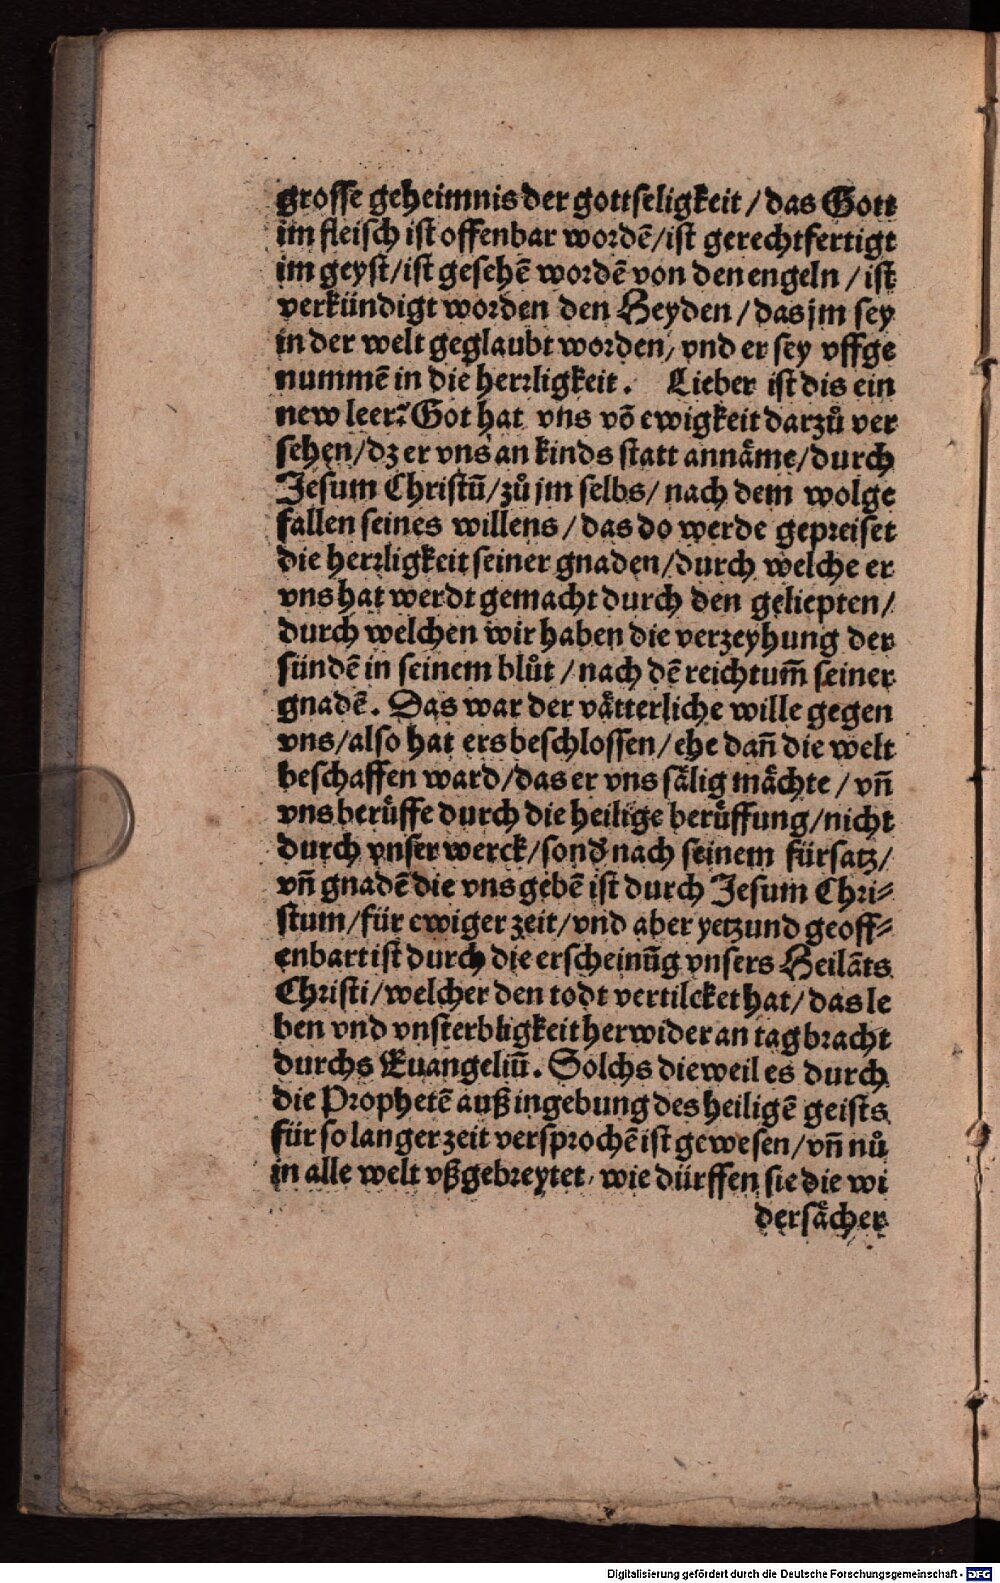 grosse geheimnis der gottseligkeit / das Gott
im fleisch ist offenbar wordē/ist gerechtfertigt
im geyst/ist gesehē wordē von den engeln / ist
verkündigt worden den Heyden / das jm sey
in der welt geglaubt worden/ vnd er sey vffge
nummē in die herrligkeit. Lieber ist dis ein
new leer? Got hat vns vō ewigkeit darzů ver
sehen/dz er vns an kinds statt annäme/durch
Jesum Christū/zů jm selbs/ nach dem wolge
fallen seines willens / das do werde gepreiset
die herrligkeit seiner gnaden/durch welche er
vns hat werdt gemacht durch den geliepten/
durch welchen wir haben die verzeyhung der
sündē in seinem blůt / nach dē reichtum̄ seiner
gnadē. Das war der vätterliche wille gegen
vns/also hat ers beschlossen/ehe dañ die welt
beschaffen ward/das er vns sälig mächte / vñ
vns berüffe durch die heilige berüffung/nicht
durch vnser werck/sond̕ nach seinem fürsatz/
vñ gnadē die vns gebē ist durch Jesum Chri⸗
stum/für ewiger zeit/vnd aber yetzund geoff⸗
enbart ist durch die erscheinūg vnsers Heilāts
Christi/welcher den todt vertilcket hat/das le
ben vnd vnsterbligkeit herwider an tag bracht
durchs Euangeliū. Solchs dieweil es durch
die Prophetē auß ingebung des heiligē geists
für so langer zeit versprochē ist gewesen/vñ nů
in alle welt vßgebreytet/ wie dürffen sie die wi
dersächer
Digitalisierung gefördert durch die Deutsche Forschungsgemeinschaft - DFG